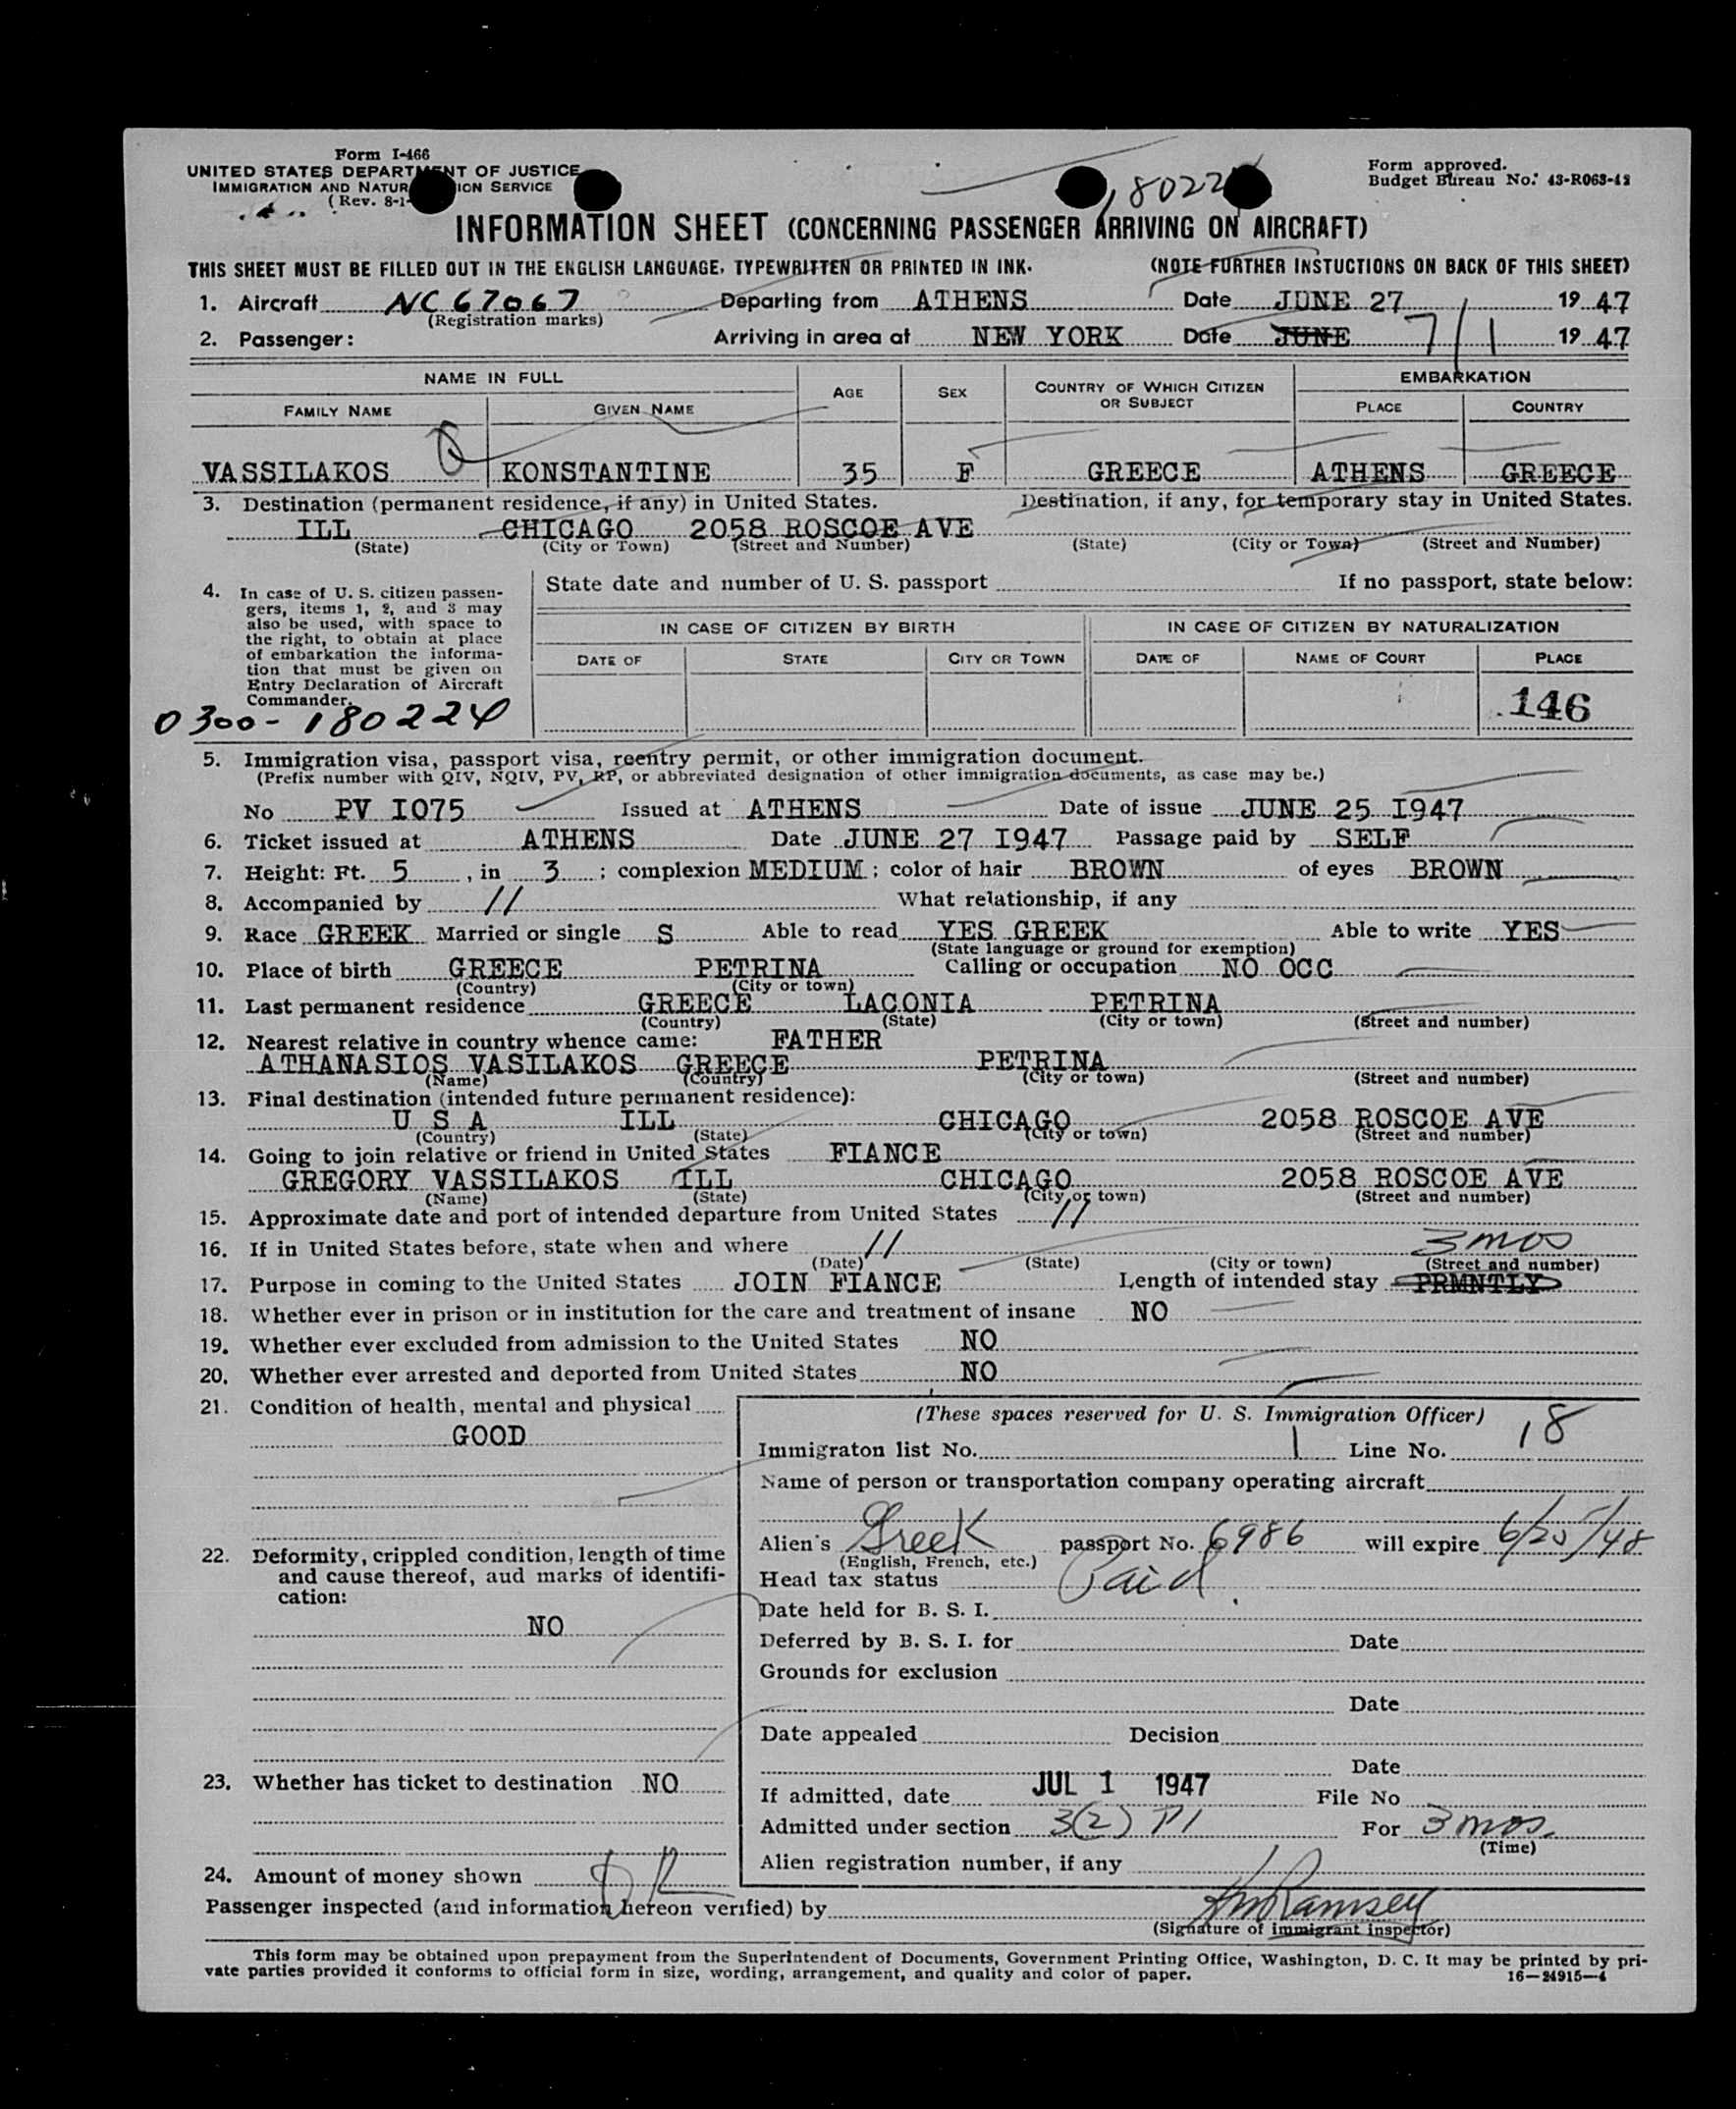 Form I-466
UNITED STATES DEPARTMENT OF JUSTICE
IMMIGRATION AND NATUR ION SERVICE
(Rev. 8-1-
Form approved.
Budget Bureau No. 43-R063-42
18022
INFORMATION SHEET (CONCERNING PASSENGER ARRIVING ON AIRCRAFT)
THIS SHEET MUST BE FILLED OUT IN THE ENGLISH LANGUAGE, TYPEWRITTEN OR PRINTED IN INK. (NOTE FURTHER INSTUCTIONS ON BACK OF THIS SHEET)
1. Aircraft NC 67067 Departing from ATHENS Date JUNE 27 1947
(Registration marks)
2. Passenger: Arriving in area at NEW YORK Date JUNE 7/1 1947
NAME IN FULL AGE SEX COUNTRY OF WHICH CITIZEN OR SUBJECT EMBARKATION
FAMILY NAME GIVEN NAME PLACE COUNTRY
VASSILAKOS KONSTANTINE 35 F GREECE ATHENS GREECE
3. Destination (permanent residence, if any) in United States. Destination, if any, for temporary stay in United States.
ILL CHICAGO 2058 ROSCOE AVE
(State) (City or Town) (Street and Number) (State) (City or Town) (Street and Number)
4. In case of U. S. citizen passen-
gers, items 1, 2, and 3 may
also be used, with space to
the right, to obtain at place
of embarkation the informa-
tion that must be given on
Entry Declaration of Aircraft
Commander.
0300-180224
State date and number of U. S. passport If no passport, state below:
IN CASE OF CITIZEN BY BIRTH IN CASE OF CITIZEN BY NATURALIZATION
DATE OF STATE CITY OR TOWN DATE OF NAME OF COURT PLACE
146
5. Immigration visa, passport visa, reentry permit, or other immigration document.
(Prefix number with QIV, NQIV, PV, RP, or abbreviated designation of other immigration documents, as case may be.)
No PV I075 Issued at ATHENS Date of issue JUNE 25 I947
6. Ticket issued at ATHENS Date JUNE 27 I947 Passage paid by SELF
7. Height: Ft. 5, in 3; complexion MEDIUM; color of hair BROWN of eyes BROWN
8. Accompanied by // What relationship, if any
9. Race GREEK Married or single S Able to read YES GREEK Able to write YES
(State language or ground for exemption)
10. Place of birth GREECE PETRINA Calling or occupation NO OCC
(Country) (City or town)
11. Last permanent residence GREECE LACONIA PETRINA
(Country) (State) (City or town) (Street and number)
12. Nearest relative in country whence came: FATHER
ATHANASIOS VASILAKOS GREECE PETRINA
(Name) (Country) (City or town) (Street and number)
13. Final destination (intended future permanent residence):
U S A ILL CHICAGO 2058 ROSCOE AVE
(Country) (State) (City or town) (Street and number)
14. Going to join relative or friend in United States FIANCE
GREGORY VASSILAKOS ILL CHICAGO 2058 ROSCOE AVE
(Name) (State) (City or town) (Street and number)
15. Approximate date and port of intended departure from United States //
16. If in United States before, state when and where // 3 mos
(Date) (State) (City or town) (Street and number)
17. Purpose in coming to the United States JOIN FIANCE Length of intended stay PRMNTLY
18. Whether ever in prison or in institution for the care and treatment of insane NO
19. Whether ever excluded from admission to the United States NO
20. Whether ever arrested and deported from United States NO
21. Condition of health, mental and physical
GOOD
22. Deformity, crippled condition, length of time
and cause thereof, aud marks of identifi-
cation:
NO
23. Whether has ticket to destination NO
24. Amount of money shown OK
(These spaces reserved for U. S. Immigration Officer)
Immigraton list No. 1 Line No. 18
Name of person or transportation company operating aircraft
Alien's Greek passport No. 6986 will expire 6/25/48
(English, French, etc.)
Head tax status Paid
Date held for B. S. I.
Deferred by B. S. I. for Date
Grounds for exclusion
Date
Date appealed Decision
Date
If admitted, date JUL 1 1947 File No
Admitted under section 3(2) P1 For 3 mos.
(Time)
Alien registration number, if any
Passenger inspected (and information hereon verified) by Ramsey
(Signature of immigrant inspector)
This form may be obtained upon prepayment from the Superintendent of Documents, Government Printing Office, Washington, D. C. It may be printed by pri-
vate parties provided it conforms to official form in size, wording, arrangement, and quality and color of paper. 16—24915—4